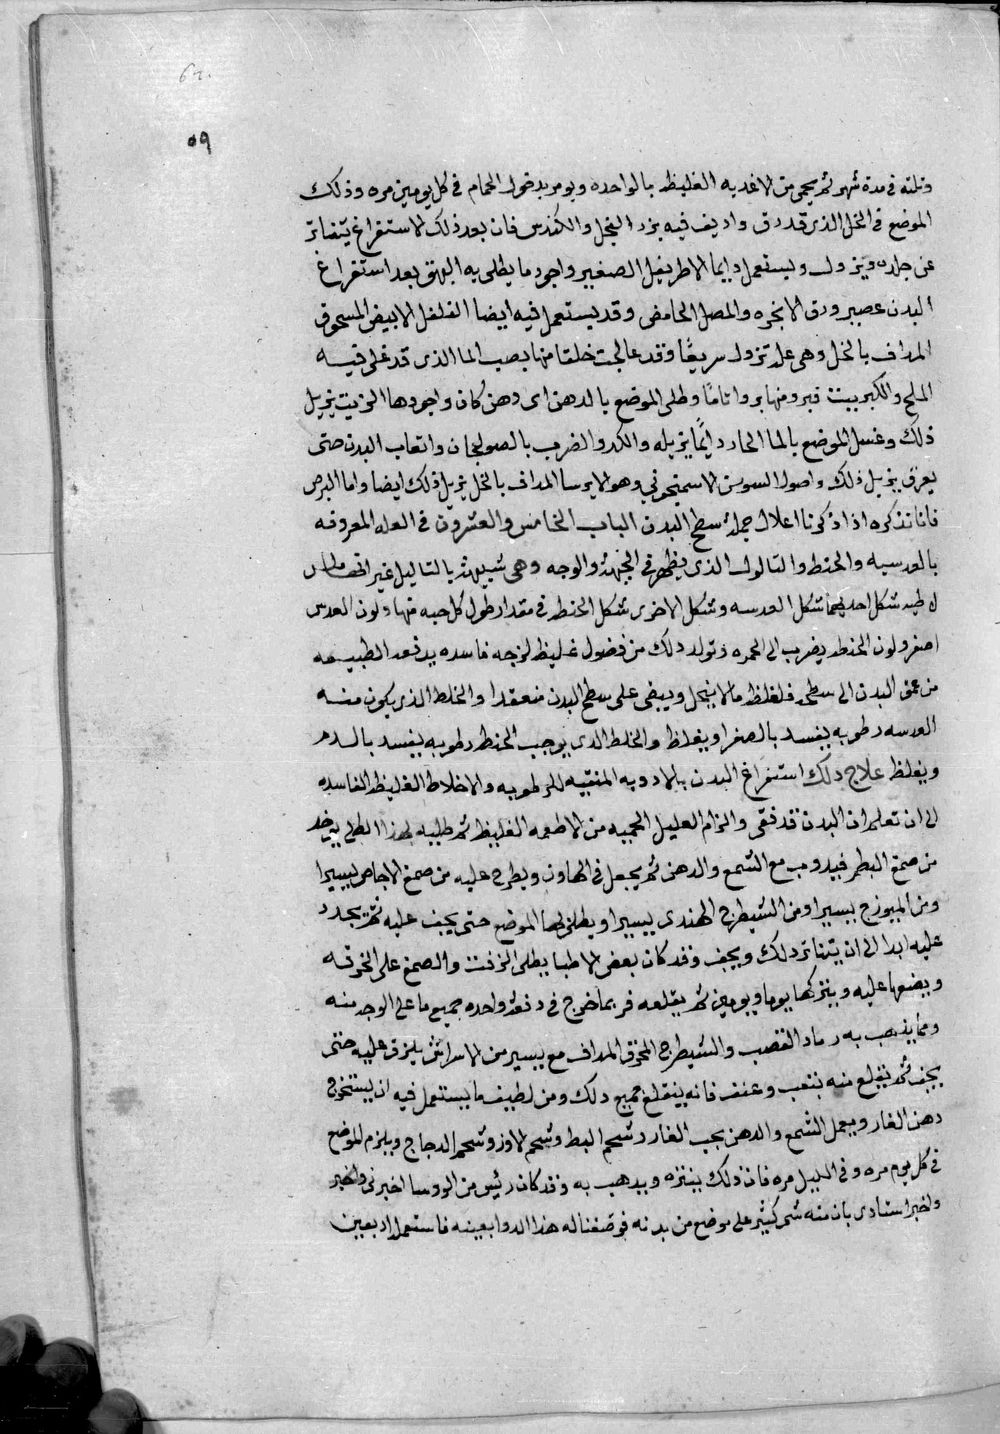 62.
٥٩
وثلثه في مدة شهر ثم يحمى من الاغديه الغليظه بالواحده ويومر بدخول الحمام في كل يومين مره وذلك
الموضع في الخل الذى قد دق واديف فيه بزر الفجل والكندس فان بعد ذلك الاستفراغ يتناثر
عن جلده ويزول ويستعمل دايما الاطريفل الصغير واجود ما يطلى به البهق بعد استفراغ
البدن عصير ورق الانجره والمصل الحامض وقد يستعمل فيه ايضا الفلفل الابيض المسحوق
المداف بالخل وهى عله تزول سريعًا وقد عالجت خلقا منها بصب الما الذى قد غلى فيه
الملح والكبريت فبرو منها بروا تامًا وطلى الموضع بالدهن اى دهن كان واجودها الزيت يزيل
ذلك وغسل الموضع بالما الحار دايمًا يزيله والكد والضرب بالصولجان واتعاب البدن حتى
يعرق يزيل ذلك واصول السوسن الاسمنجوني وهو الايرسا المداف بالخل يزيل ذلك ايضا واما البرص
فانا نذكره اذا ذكرنا اعلال جملة سطح البدن الباب الخامس والعشرون في العله المعروفه
بالعدسيه والحنطه والثالول الذى يظهر في الجبهة والوجه وهى شبيهة بالثاليل غير انها
لاطيه شكل احديهما شكل العدسه وشكل الاخرى شكل الحنطه في مقدار طول كل حبه منها ولون العدس
اصفر ولون الحنطه يضرب الى الحمره وتولد ذلك من فضول غليظه لزجه فاسده يدفعها الطبيعه
من عمق البدن الى سطحه فلغلظ ما لا ينحل ويبقى على سطح البدن منعقدا والخلط الذى يكون منه
العدسه رطوبه يفسد بالصفرا ويغلظ والخلط الذى يوجب الحنطه رطوبه يفسد بالدم
ويغلظ علاج ذلك استفراغ البدن بالادويه المنقيه للرطوبه والاخلاط الغليظه الفاسده
الى ان تعلم ان البدن قد نقى والزام العليل الحميه من الاطعمه الغليظه ثم طليه بهذا الطلى يوخد
من صمغ البطم فيدوب مع الشمع والدهن ثم يجعل في الهاون ويطرح عليه من صمغ الاجاص يسيرا
ومن الميوزج يسيرا ومن الشيطرج الهندى يسيرا ويطلى بها الموضع حتى يجف عليه ثم يجدد
عليه ابدا الى ان يتناثر ذلك ويجف وقد كان بعض الاطبا يطلى الزفت والصمغ على الخرقه
ويضعها عليه ويتركها يوما ويومين ثم يقلعه فربما خرج في دفعة واحده جميع ما على الوجه منه
ومما يذهب به رماد القصب والشيطرج المحرق المداف مع يسير من الاسراش يلزق عليه حتى
يجف ثم يقلع منه بتعب وعنف فانه ينقلع جميع ذلك ومن لطيف ما يستعمل فيه ان يستخرج
دهن الغار ويعمل الشمع والدهن بحب الغار وشحم البط وشحم الاوز وشحم الدجاج ويلزم الموضع
في كل يوم مره وفى الليل مره فان ذلك ينثره ويدهب به وقد كان رئيس من الروسا اخبرنى
واخبر استادى بان منه شى كثير على موضع من بدنه فوصفنا له هذا الدوا بعينه فاستعمله اربعين